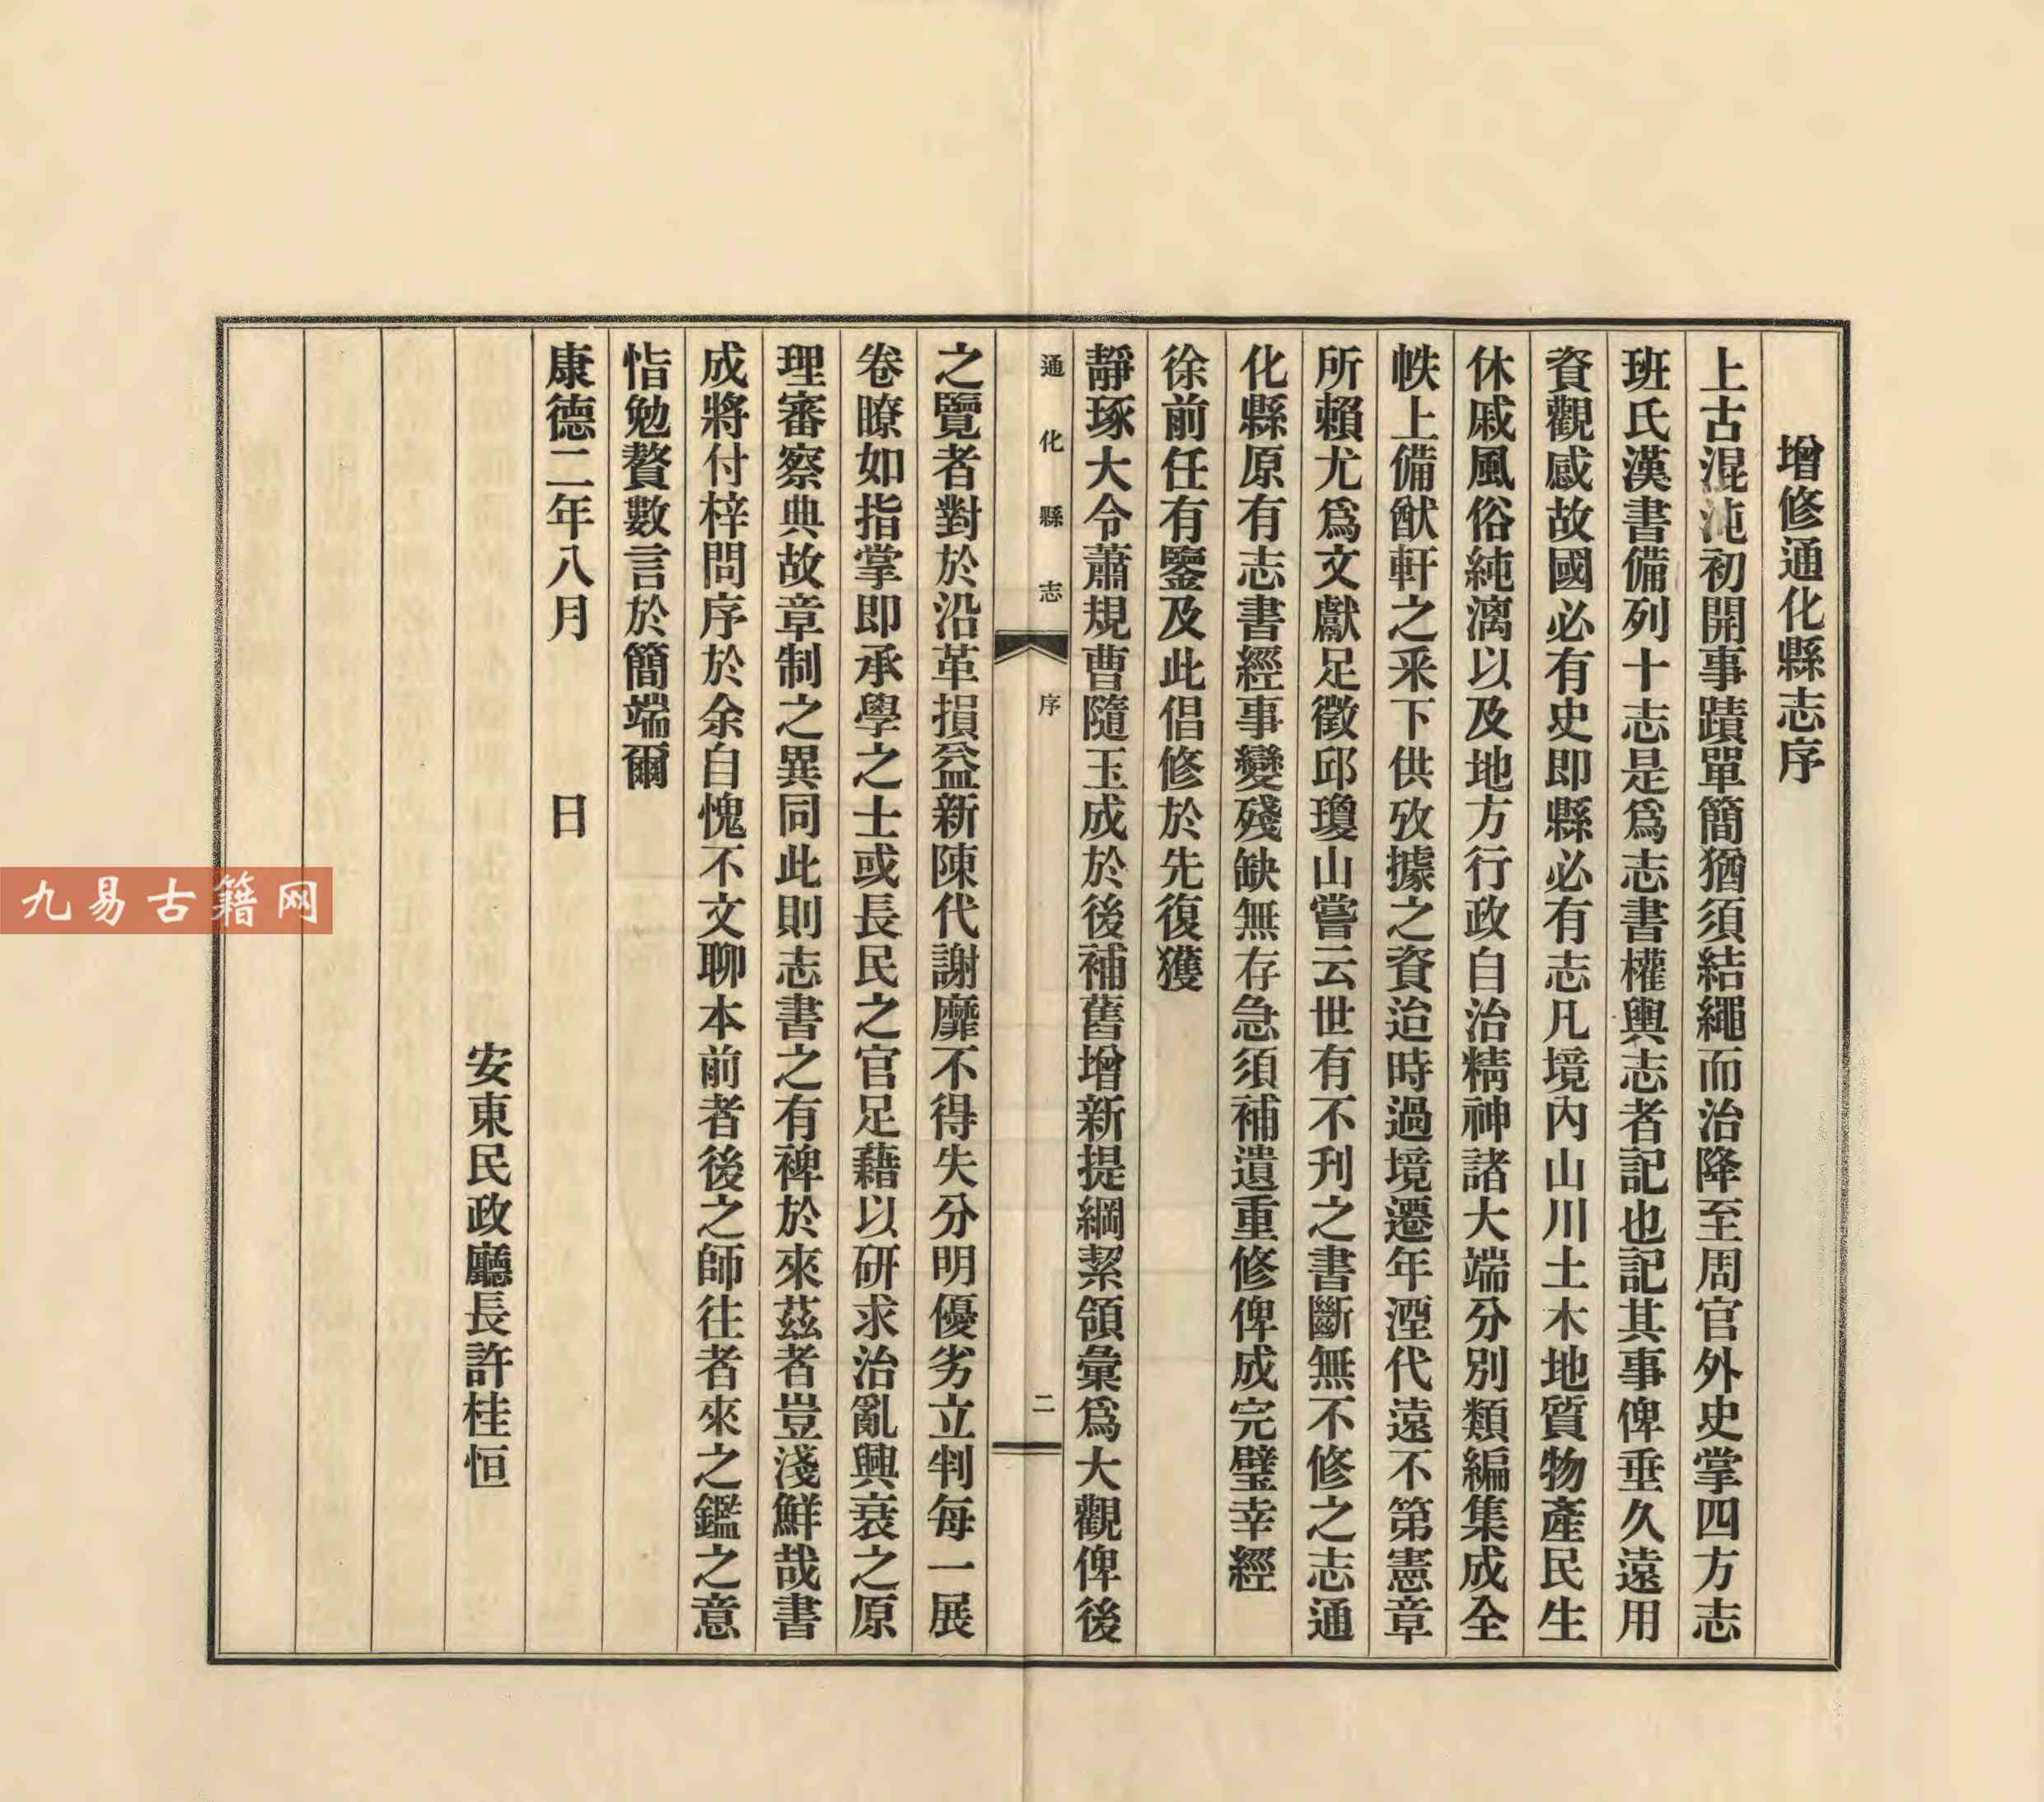 增修通化縣志序
上古混沌初開事蹟單簡猶須結繩而治降至周官外史掌四方志
班氏漢書備列十志是爲志書權輿志者記也記其事俾垂久遠用
資觀感故國必有史即縣必有志凡境內山川土木地質物產民生
休戚風俗純漓以及地方行政自治精神諸大端分別類編集成全
帙上備猷軒之采下供攷據之資迨時過境遷年湮代遠不第憲章
所賴尤爲文獻足徵邱瓊山嘗云世有不刋之書斷無不修之志通
化縣原有志書經事變殘缺無存急須補遺重修俾成完璧幸經
徐前任有鑒及此倡修於先復獲
靜琢大令蕭規曹隨玉成於後補舊增新提綱絜領彙爲大觀俾後
通化縣志 序 二
之覽者對於沿革損益新陳代謝靡不得失分明優劣立判每一展
卷瞭如指掌即承學之士或長民之官足藉以研求治亂興衰之原
理審察典故章制之異同此則志書之有裨於來茲者豈淺鮮哉書
成將付梓問序於余自愧不文聊本前者後之師往者來之鑑之意
恉勉贅數言於簡端爾
康德二年八月 日
安東民政廳長許桂恒
九易古籍网